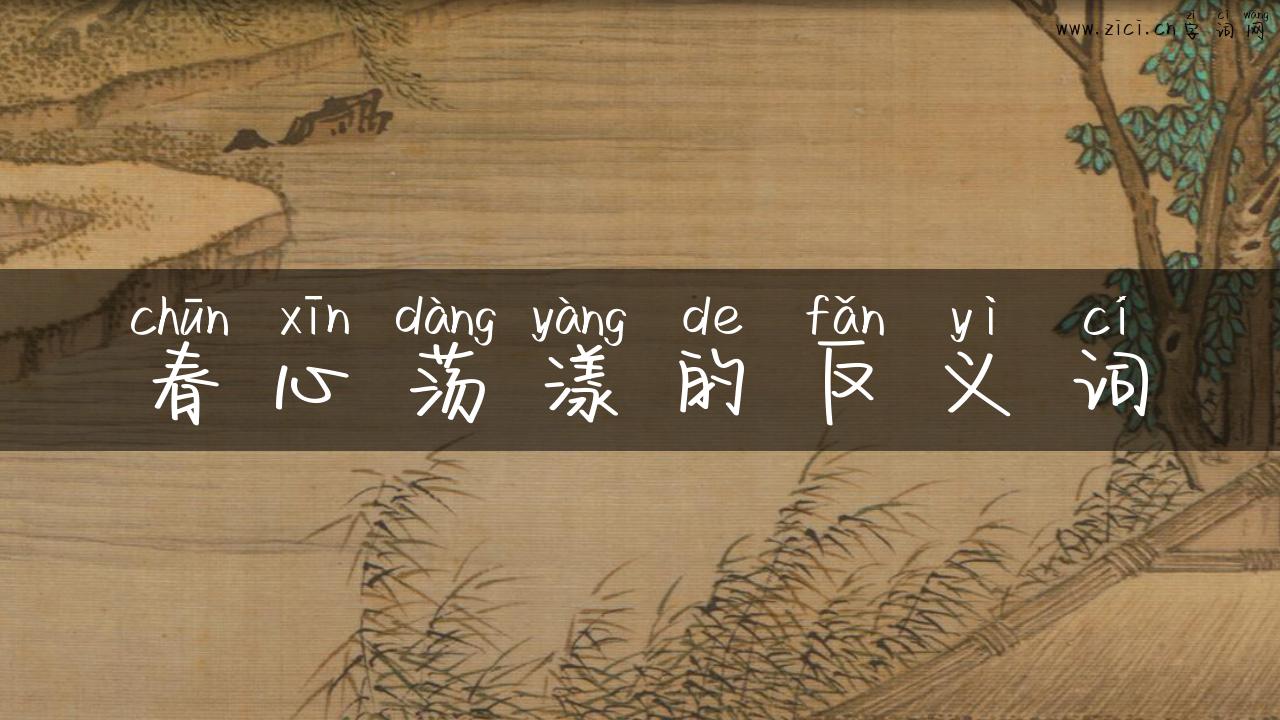 zì cí wǎng
www.zici.cn字词网
chūn xīn dàng yàng de fǎn yì cí
春心荡漾的反义词